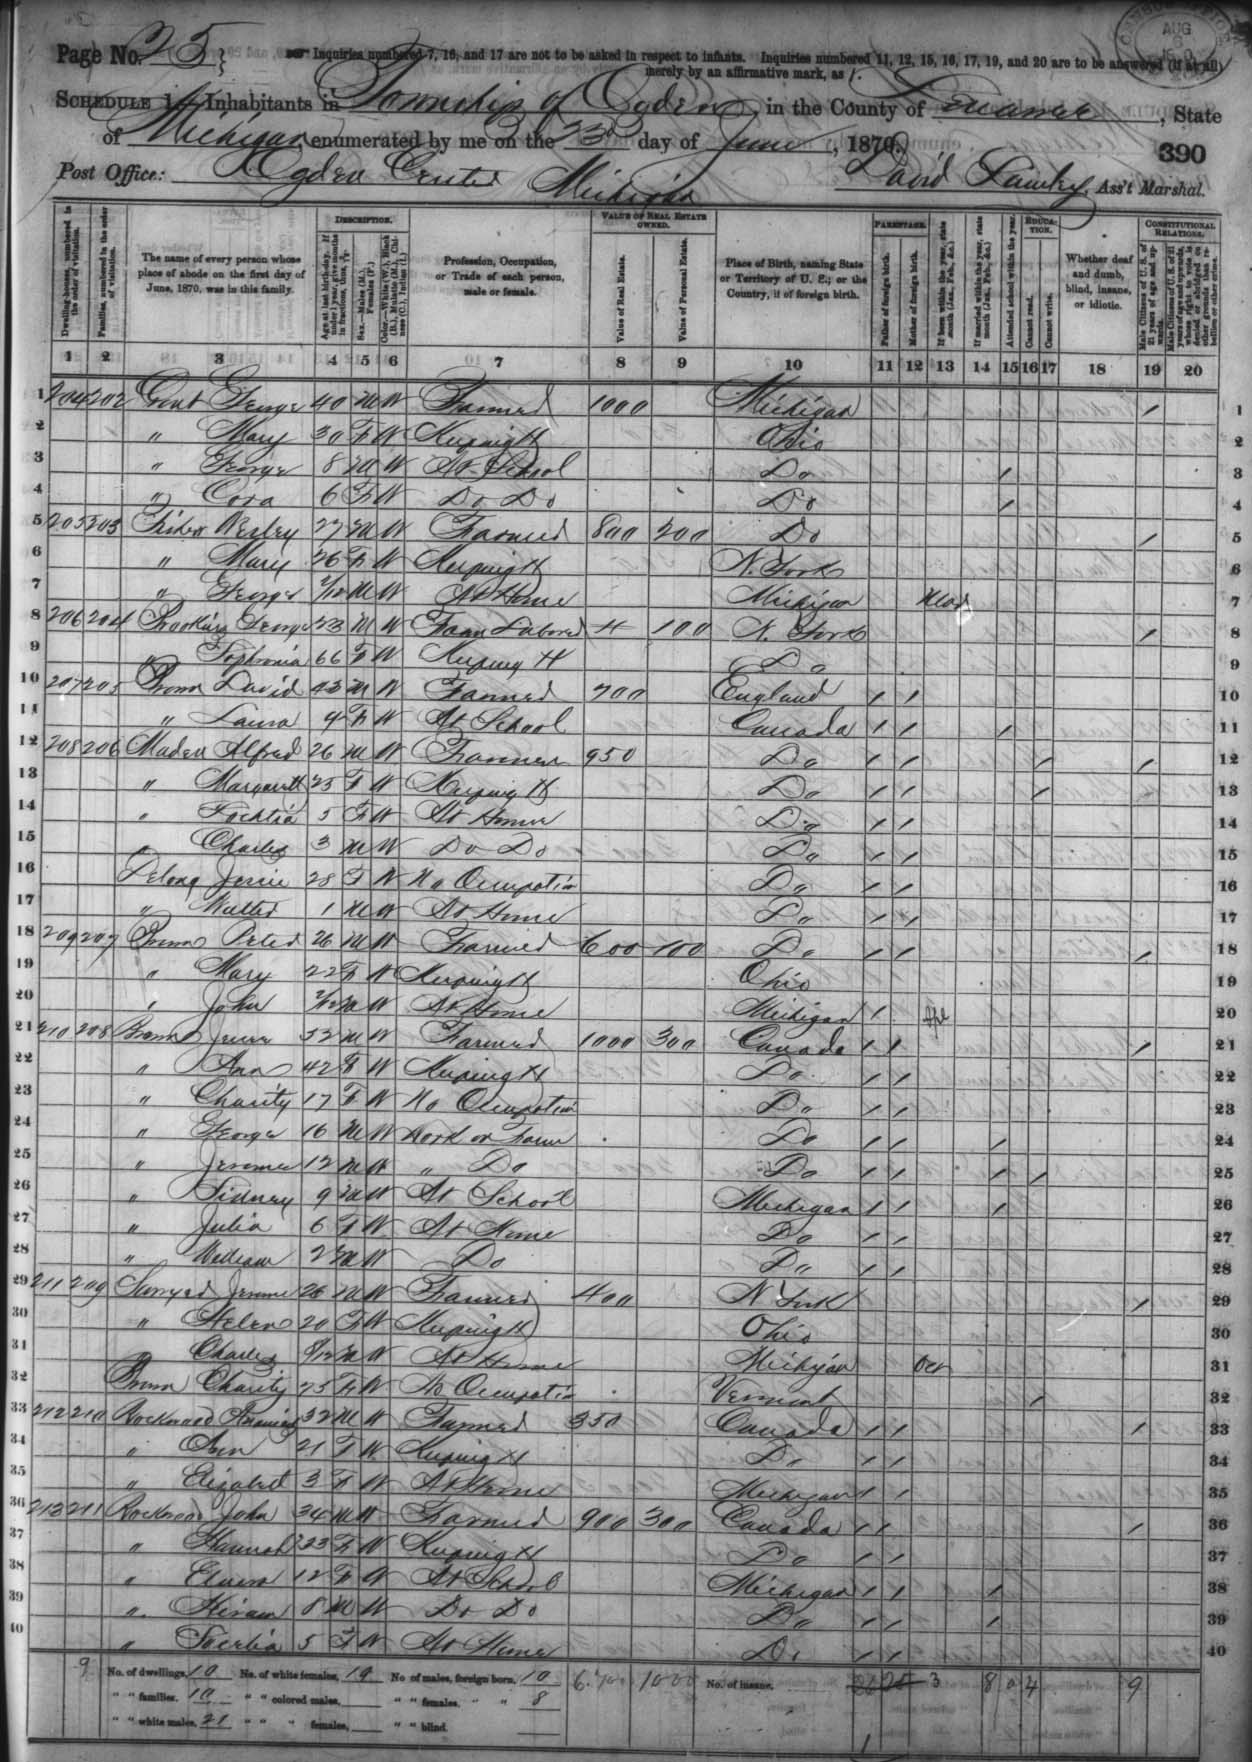 Page No. 25
Inquiries numbered 7, 16, and 17 are not to be asked in respect to infants. Inquiries numbered 11, 12, 15, 16, 17, 19, and 20 are to be answered (if at all)
merely by an affirmative mark, as /.
AUG
SCHEDULE 1.—Inhabitants in Township of Ogden, in the County of Lenawee, State
of Michigan enumerated by me on the 23d day of June, 1870.
390
Post Office: Ogden Center Michigan David Ass't Marshal.
Dwelling-houses, numbered in the order of visitation.
Families, numbered in the order of visitation.
The name of every person whose place of abode on the first day of June, 1870, was in this family.
DESCRIPTION.
Age at last birth-day. If under 1 year, give months in fractions, thus, 3/12
Sex.—Males (M.), Females (F.)
Color.—White (W.), Black (B.), Mulatto (M.), Chinese (C.), Indian (I.)
Profession, Occupation, or Trade of each person, male or female.
VALUE OF REAL ESTATE OWNED.
Value of Real Estate.
Value of Personal Estate.
Place of Birth, naming State or Territory of U. S.; or the Country, if of foreign birth.
PARENTAGE.
Father of foreign birth.
Mother of foreign birth.
If born within the year, state month (Jan., Feb., &c.)
If married within the year, state month (Jan., Feb., &c.)
Attended school within the year.
EDUCATION.
Cannot read.
Cannot write.
Whether deaf and dumb, blind, insane, or idiotic.
CONSTITUTIONAL RELATIONS.
Male Citizens of U. S. of 21 years of age and upwards.
Male Citizens of U. S. of 21 years of age and upwards, whose right to vote is denied or abridged on other grounds than rebellion or other crime.
1 2 3 4 5 6 7 8 9 10 11 12 13 14 15 16 17 18 19 20
1 204 202 George 40 M W Farmer 1000 Michigan / 1
2 " Mary 30 F W Keeping H Ohio 2
3 " George 8 M W At School Do / 3
4 " Cora 6 F W Do Do Do / 4
5 205 203 Fisher Wesley 27 M W Farmer 800 200 Do / 5
6 " Mary 26 F W Keeping H N. York 6
7 " George M W At Home Michigan 7
8 206 204 George M W Farm Laborer 100 N. York / 8
9 " Sophronia 66 F W Keeping H Do 9
10 207 205 Brown David 43 M W Farmer 700 England / / 10
11 " Laura F W At School Canada / / / 11
12 208 206 Maden Alfred 26 M W Farmer 950 Do / / / / 12
13 " Margarett 25 F W Keeping H Do / / / 13
14 " 5 F W At Home Do / / 14
15 " Charles 3 M W Do Do Do / / 15
16 Delong 28 F W No Occupation Do / / 16
17 " Walter 1 M W At Home Do / / 17
18 209 207 Brown Peter 26 M W Farmer 600 100 Do / / / 18
19 " Mary 22 F W Keeping H Ohio 19
20 " John M W At Home Michigan / 20
21 210 208 Brown 52 M W Farmer 1000 300 Canada / / / 21
22 " Ann 42 F W Keeping H Do / / 22
23 " Charity 17 F W No Occupation Do / / 23
24 " George 16 M W Work on Farm Do / / / 24
25 " Jerome 12 M W " Do Do / / / / 25
26 " Sidney 9 M W At School Michigan / / / 26
27 " Julia 6 F W At Home Do / / 27
28 " William 2 M W Do Do / / 28
29 211 209 Jerome 26 M W Farmer 400 N York / 29
30 " Helen 20 F W Keeping H Ohio 30
31 " Charles M W At Home Michigan Oct 31
32 Brown Charity 75 F W No Occupation Vermont / 32
33 212 210 Rockwood 32 M W Farmer 350 Canada / / / 33
34 " Ann 21 F W Keeping H Do / / 34
35 " Elizabeth 3 F W At Home Michigan / / 35
36 213 211 Rockwood John 34 M W Farmer 900 300 Canada / / / 36
37 " Hannah 33 F W Keeping H Do / / 37
38 " 12 F W At School Michigan / / / 38
39 " Hiram 8 M W Do Do Do / / / 39
40 " 5 F W At Home Do / / 40
9 No. of dwellings, 10 No. of white females, 19 No. of males, foreign born, 10 1000 No. of insane, 3 8 0 4 9
" " families, 10 " " colored males, " " females, " " 8
" " white males, 21 " " " females, " " blind.